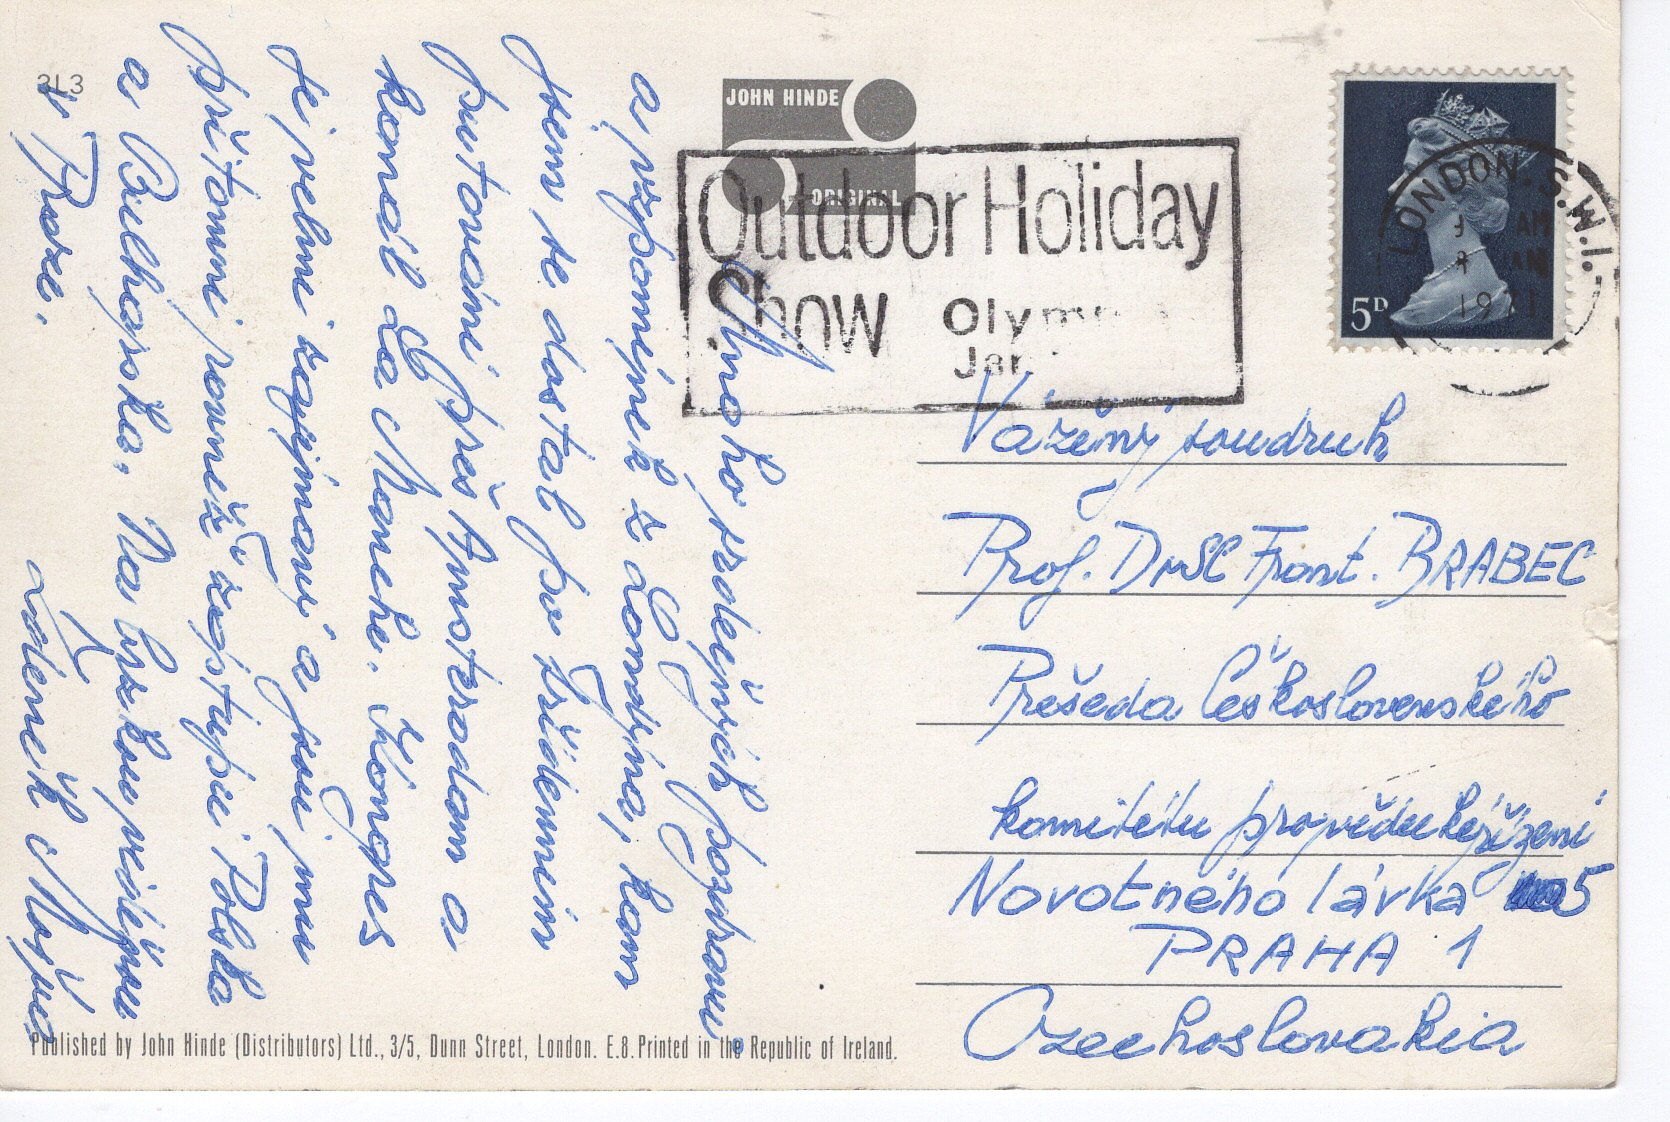 3L3
JOHN HINDE
ORIGINAL
Outdoor Holiday
Show Olym
Jan
LONDON. S.W.1.
AM
1971
5D
Mnoho srdečných pozdravů
a vzpomínek z Londýna, kam
jsem se dostal po třídenním
putování přes Amsterodam a
kanál La Manche. Kongres
je velmi zajímavý a jsou mu
přítomni rovněž zástupci Polska
a Bulharska. Na brzkou viděnou
v Praze.
Zdeněk
Vážený soudruh
Prof. DrSC Frant. BRABEC
Předseda Československého
komitétu pro vědecké řízení
Novotného lávka 5
PRAHA 1
Czechoslovakia
Published by John Hinde (Distributors) Ltd., 3/5, Dunn Street, London. E.8. Printed in the Republic of Ireland.